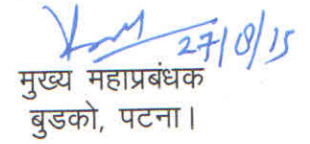 27/8/15
मुख्य महाप्रबंधक
बुडको, पटना।